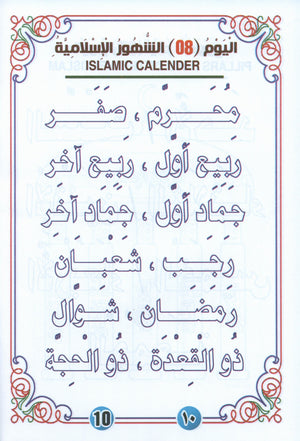 اَلْيَوْمُ (08) اَلشُّهُوْرُ الْإِسْلَامِيَّةُ
ISLAMIC CALENDER
مُحَرَّم ، صَفَر
رَبِيَع أَوَّل ، رَبِيَع آخِر
جَمَاد أَوَّل ، جَمَاد آخِر
رَجَب ، شَعْبَان
رَمَضَان ، شَوَّال
ذُو الْقِعْدَة ، ذُو الْحِجَّة
10 ١٠